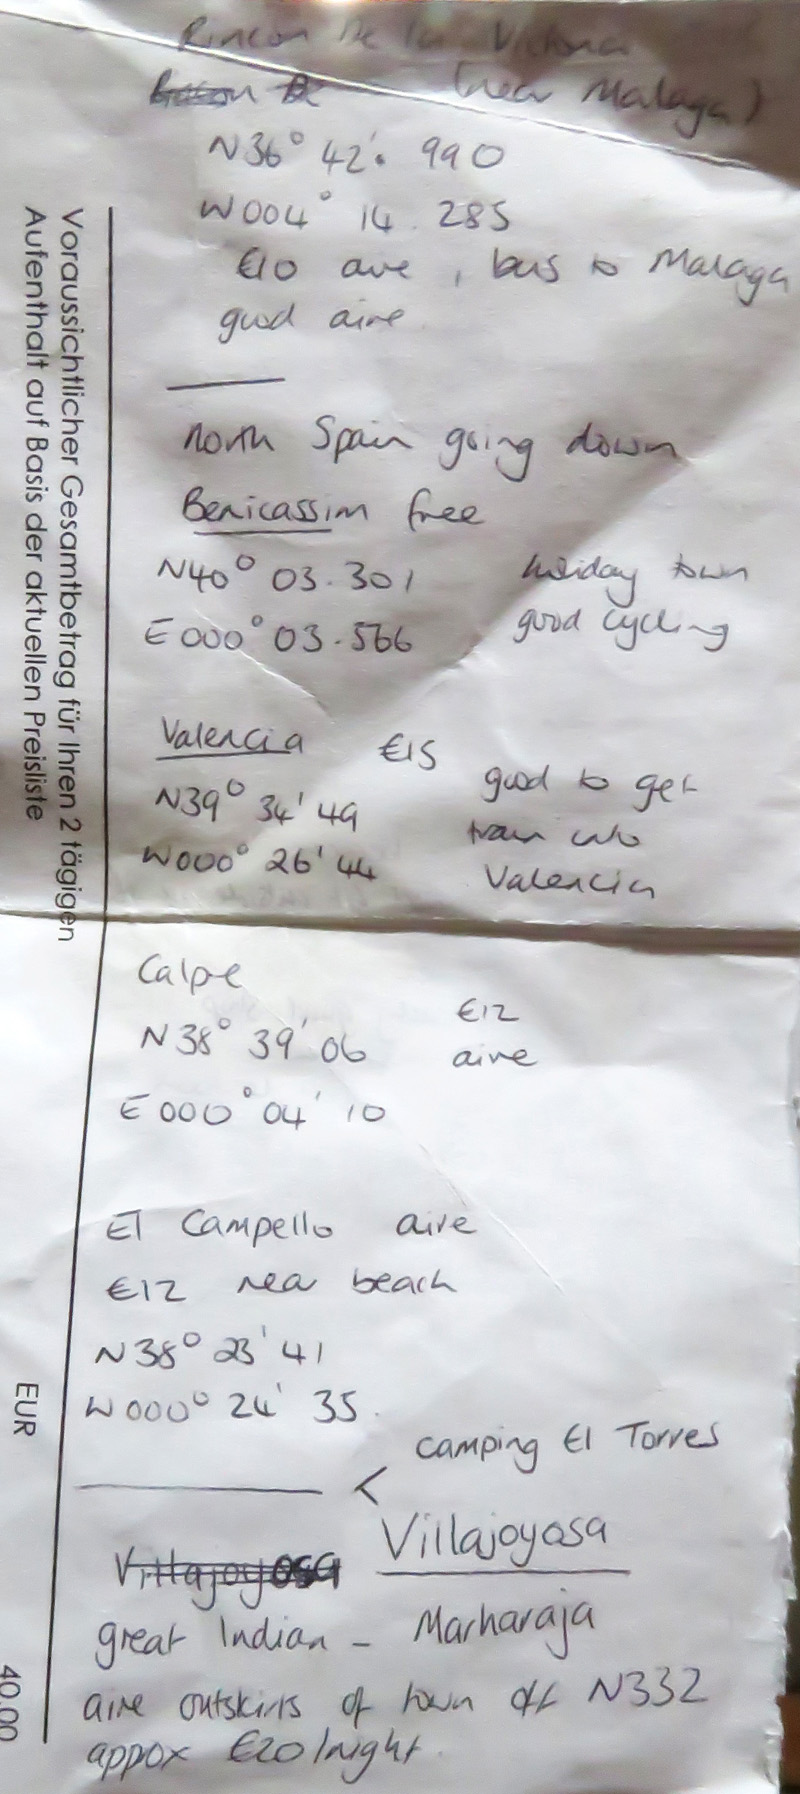 Rincon De la Victoria
(near Malaga)
N36° 42'. 990
W004° 14. 285
€10 ave, bus to Malaga
good aire
north Spain going down
Benicassim free
N40° 03.301 holiday town
E000° 03.566 good cycling
Valencia €15
N39° 34' 49 good to get
W000° 26' 44 train into
Valencia
Calpe
N38° 39' 06 €12
aire
E000° 04' 10
El Campello aire
€12 near beach
N38° 23' 41
W000° 24' 35
< camping El Torres
Villajoyosa Villajoyosa
great Indian - Marharaja
aire outskirts of town off N332
appox €20/night.
Voraussichtlicher Gesamtbetrag für Ihren 2 tägigen
Aufenthalt auf Basis der aktuellen Preisliste
EUR
40,00